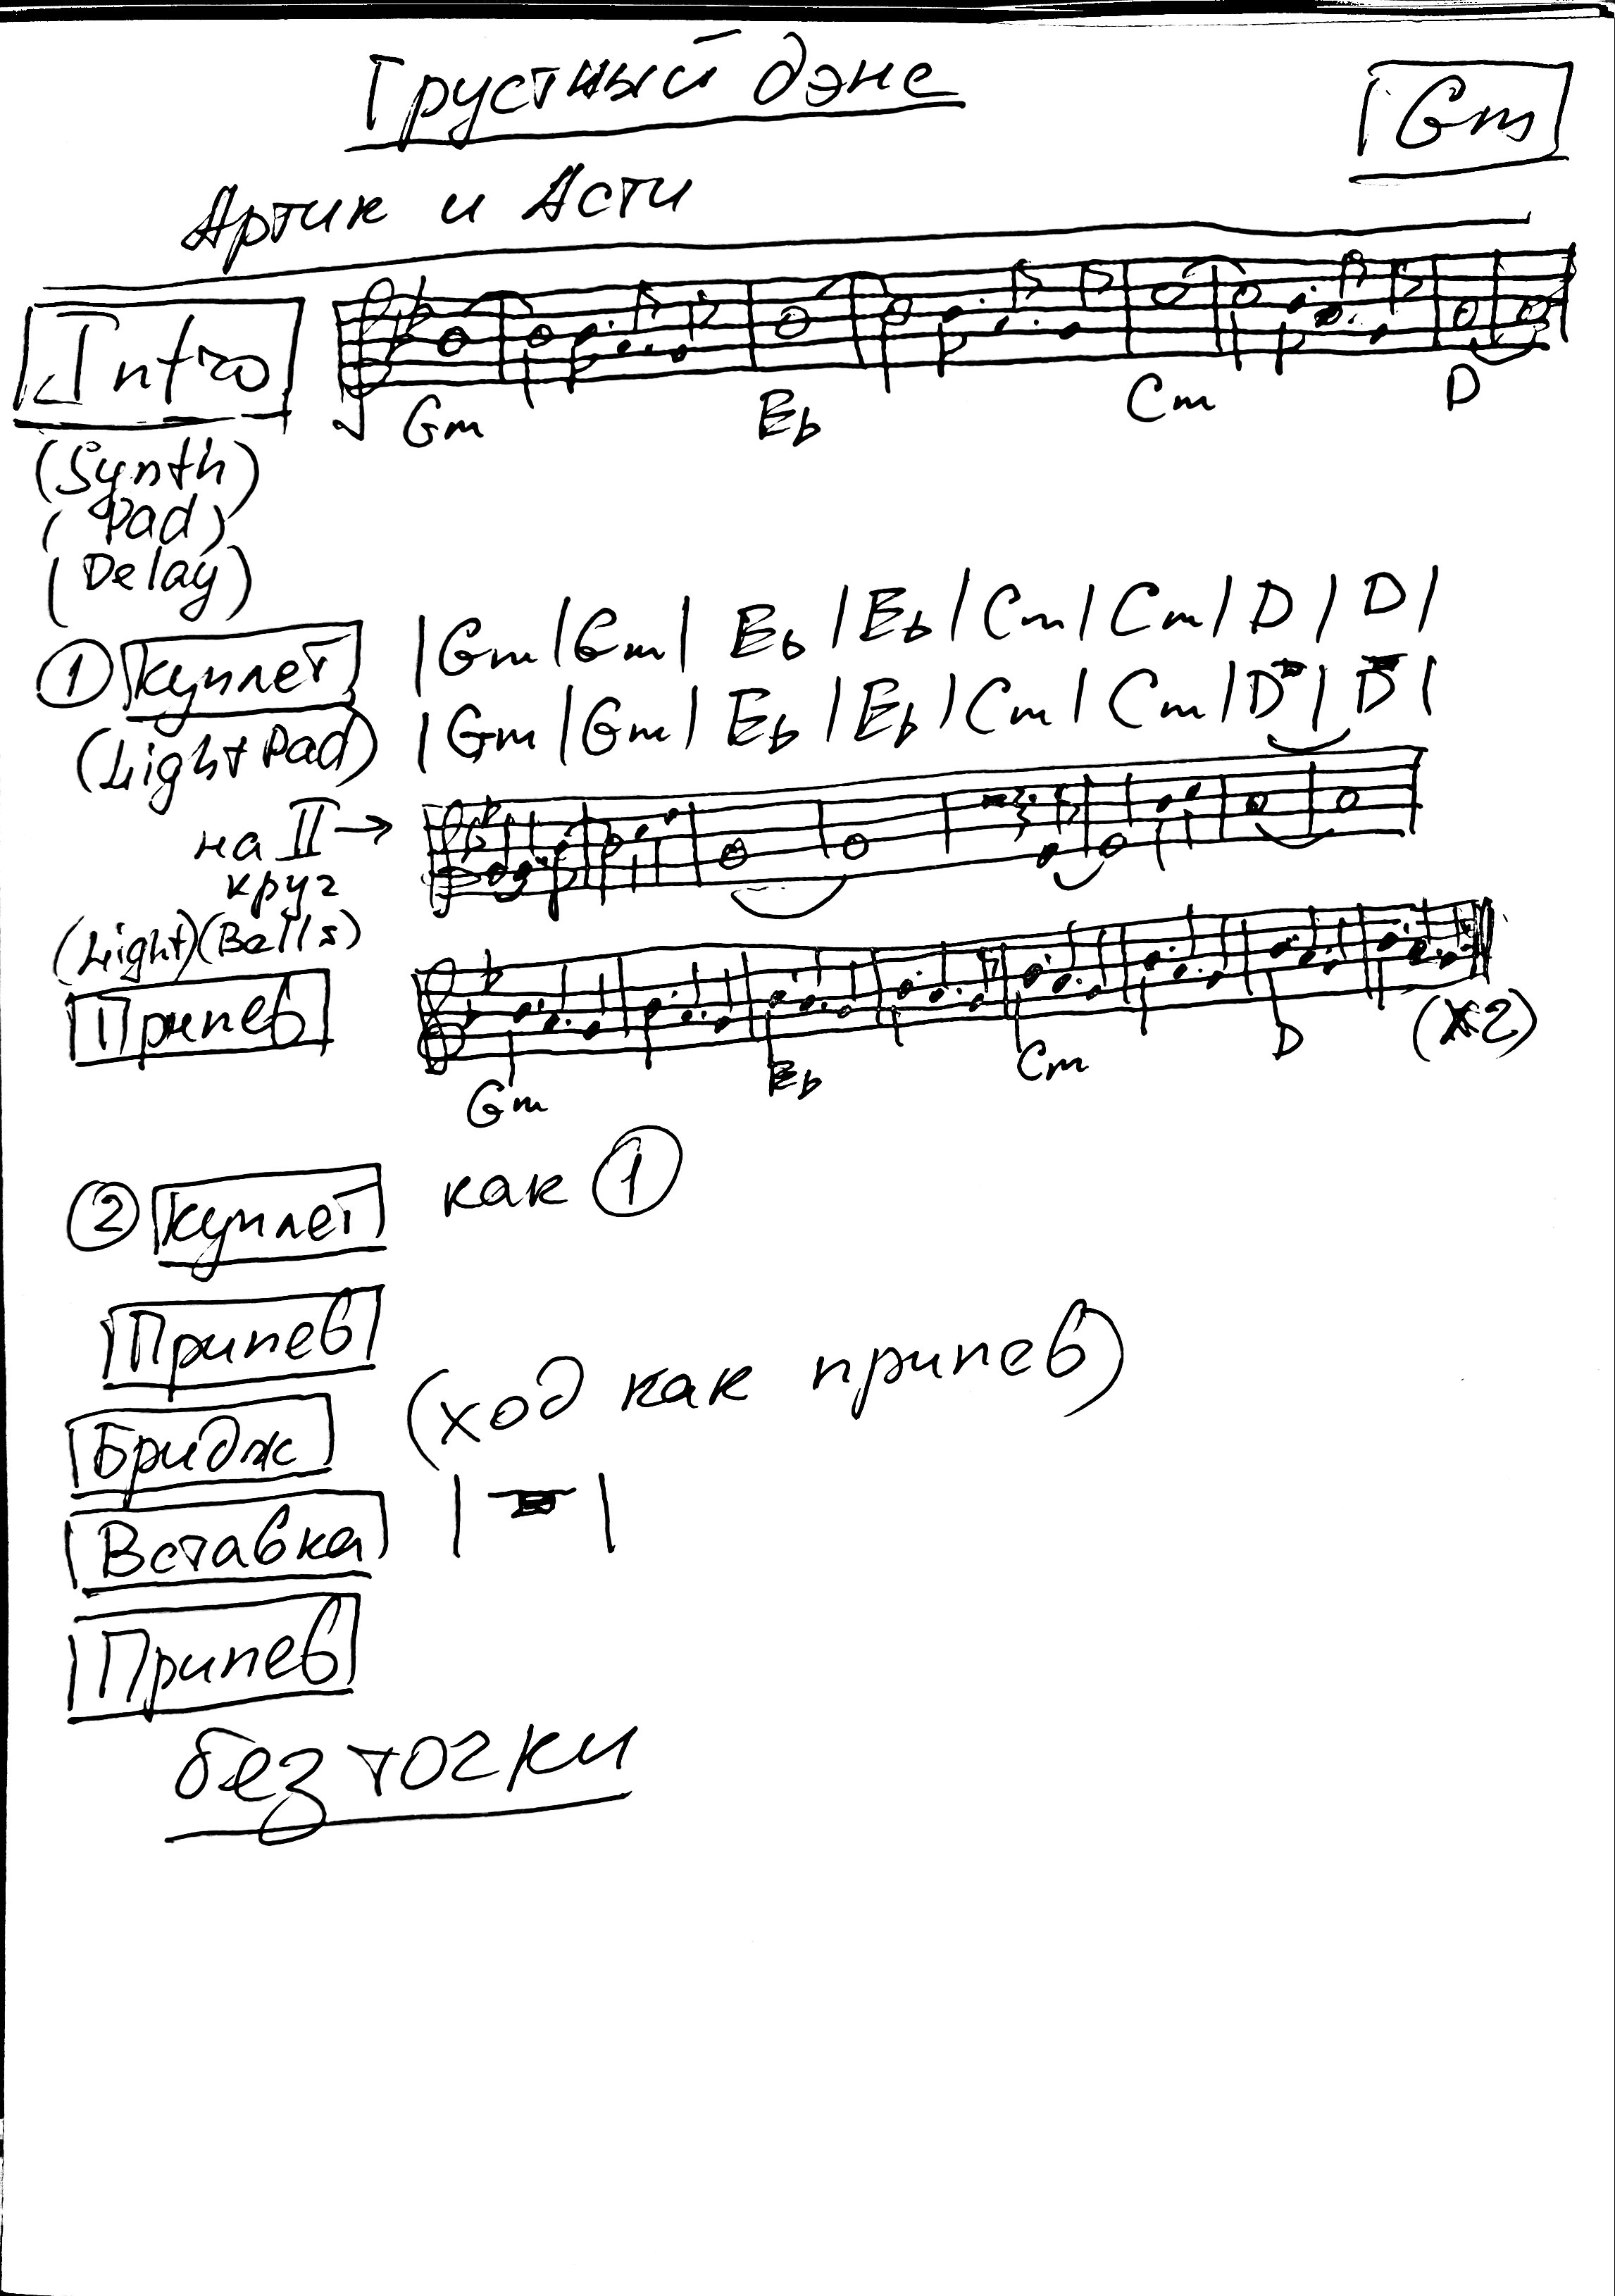 Грустный дэнс
Gm
Артик и Асти
Intro
Gm Eb Cm D
(Synth)
(Pad)
(Delay)
① Куплет |Gm|Gm| Eb |Eb| Cm| Cm| D | D |
(Light Pad) |Gm |Gm| Eb |Eb| Cm | Cm | D | D |
на II →
круг
(Light) (Bells)
Припев
Gm Eb Cm D (x2)
② Куплет как ①
Припев
Бридж (ход как припев)
Вставка
Припев
без точки